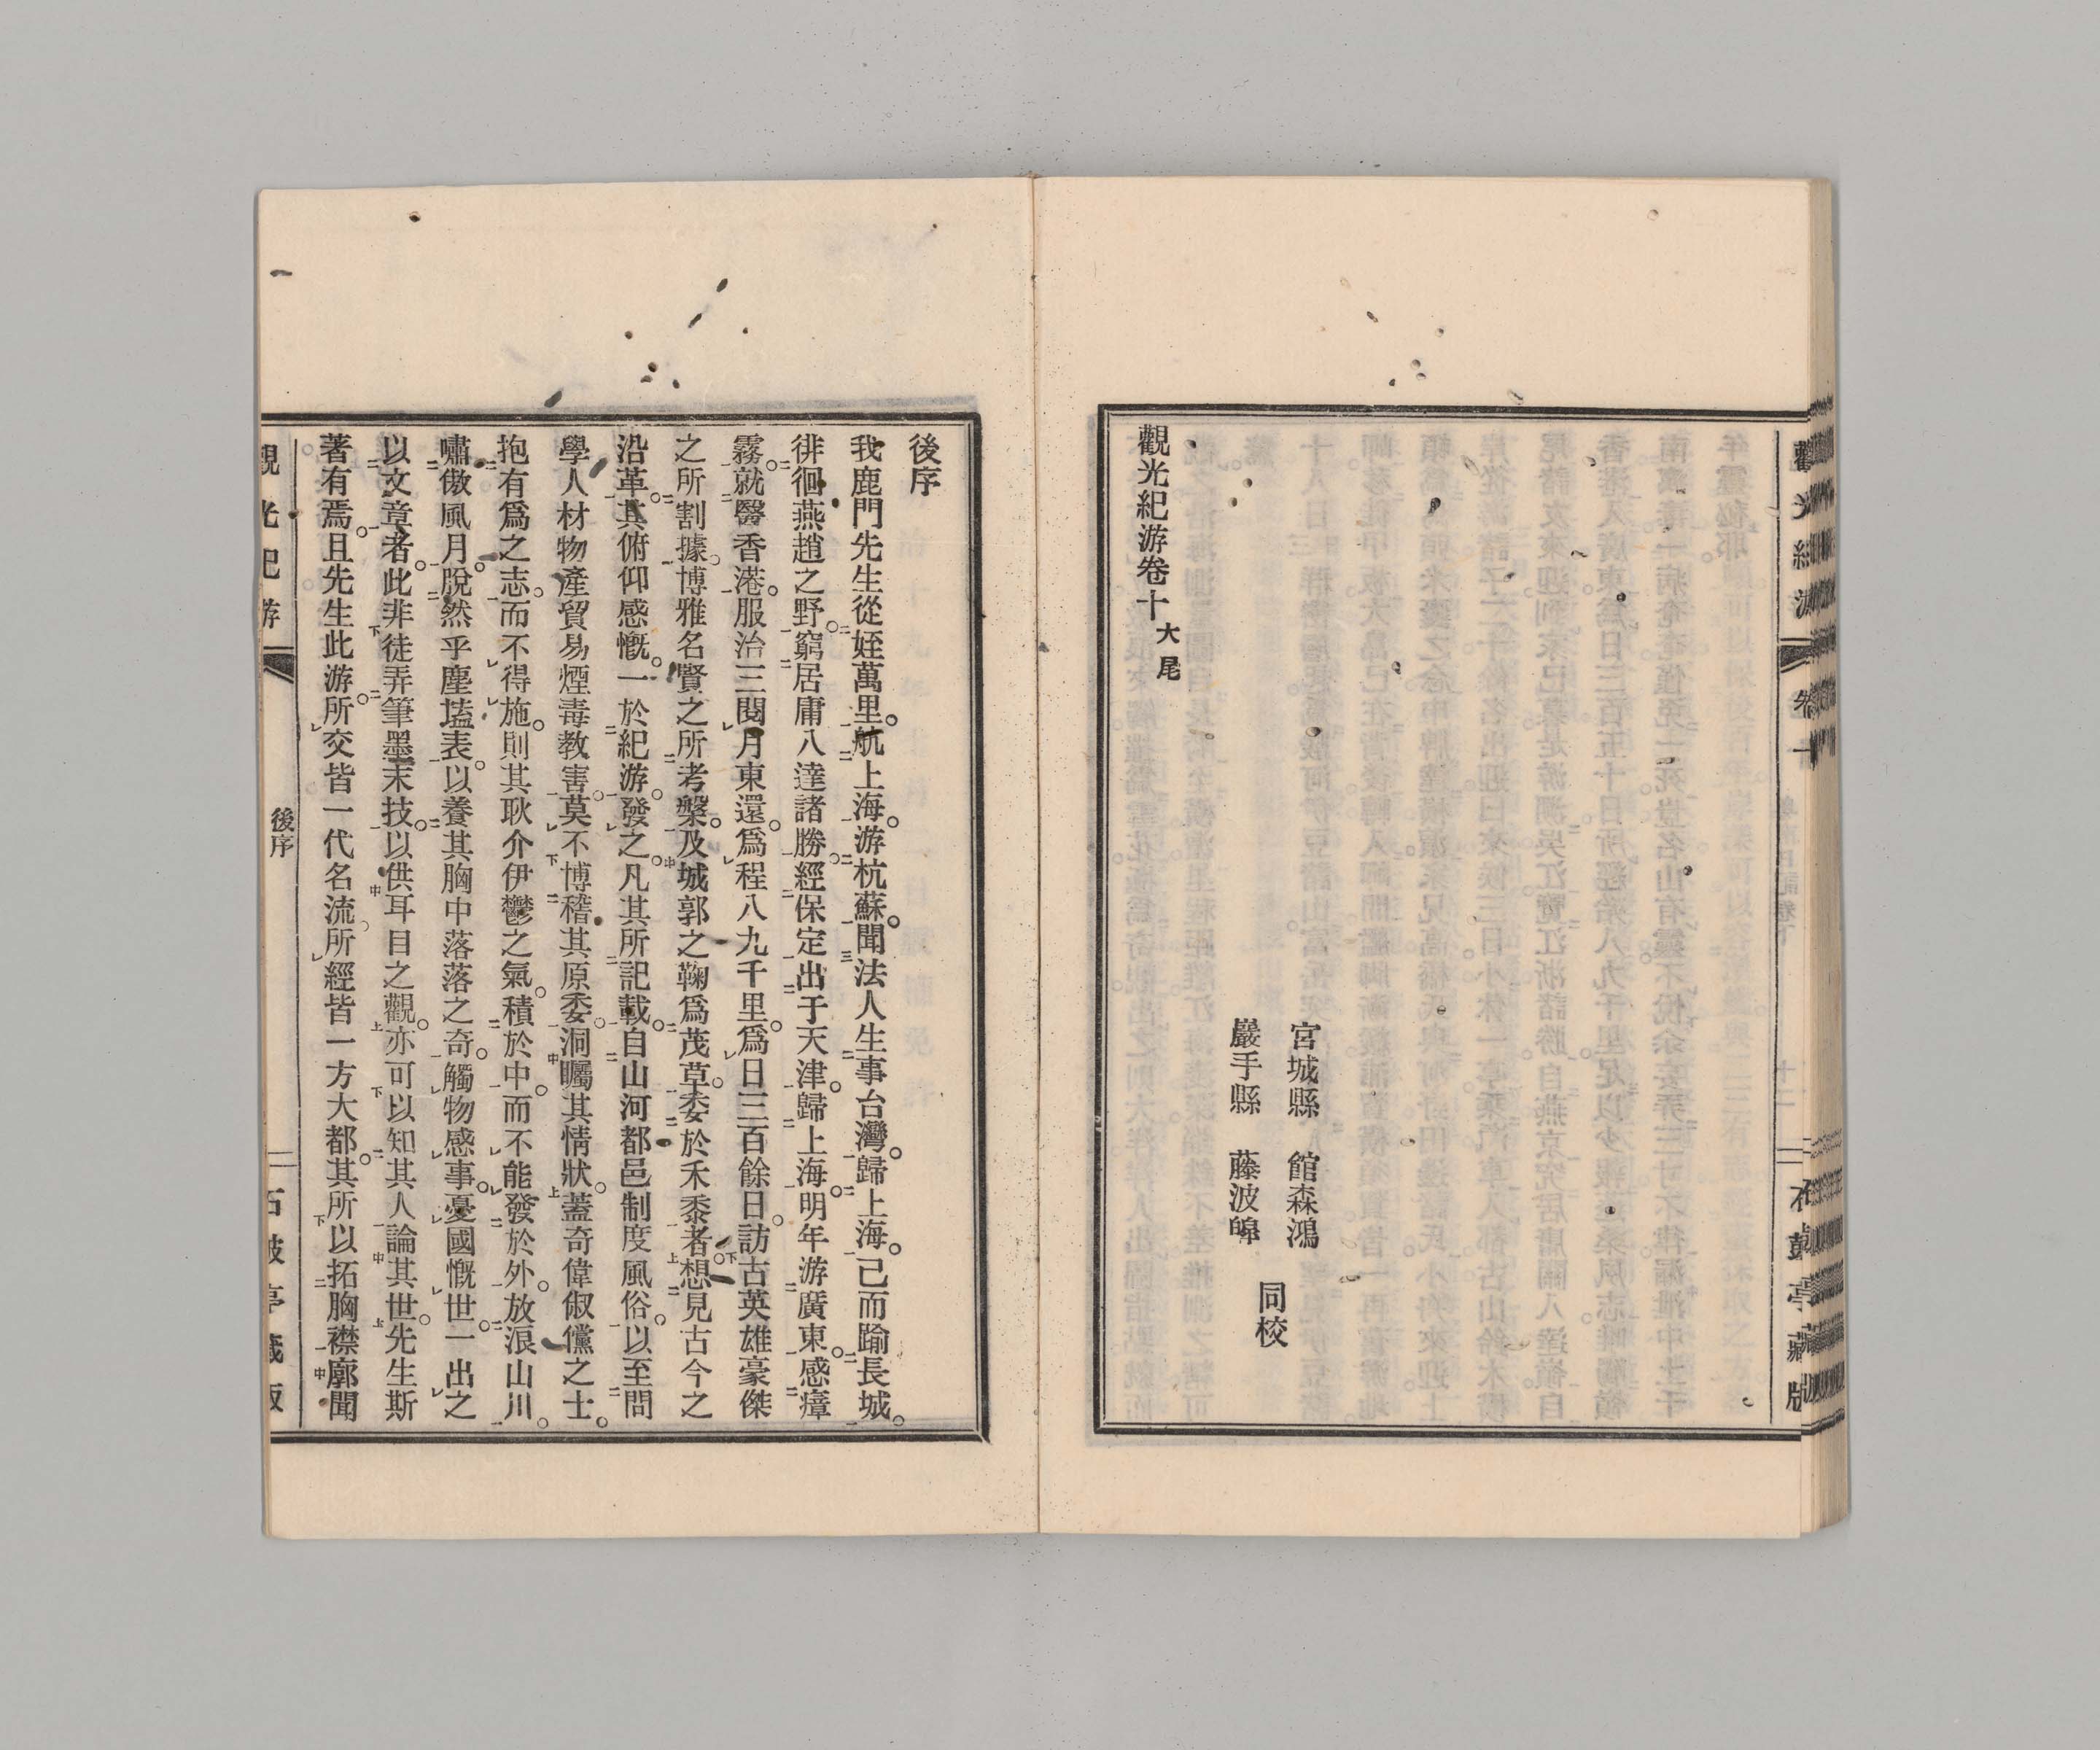 觀光紀游
卷十
石鼓亭藏版
宮城縣 館森鴻
巖手縣 藤波皞
同校
觀光紀游卷十大尾
後序
我鹿門先生從姪萬里。航上海。游杭蘇。聞法人生事台灣。歸上海。已而踰長城。
徘徊燕趙之野。窮居庸八達諸勝。經保定出于天津。歸上海。明年游廣東。感瘴
霧。就醫香港。服治三閱月東還。爲程八九千里。爲日三百餘日。訪古英雄豪傑
之所割據。博雅名賢之所考槃。及城郭之鞠爲茂草。委於禾黍者。想見古今之
沿革。其俯仰感慨。一於紀游。發之。凡其所記載。自山河都邑制度風俗。以至問
學人材物產貿易煙毒教害。莫不博稽其原委。洞矚其情狀。蓋奇偉俶儻之士。
抱有爲之志。而不得施。則其耿介伊鬱之氣。積於中。而不能發於外。放浪山川。
嘯傲風月。脫然乎塵壒表。以養其胸中落落之奇。觸物感事。憂國慨世。一出之
以文章者。此非徒弄筆墨末技。以供耳目之觀。亦可以知其人論其世。先生斯
著有焉。且先生此游。所交皆一代名流。所經皆一方大都。其所以拓胸襟廓聞
觀光紀游
後序
石鼓亭藏版